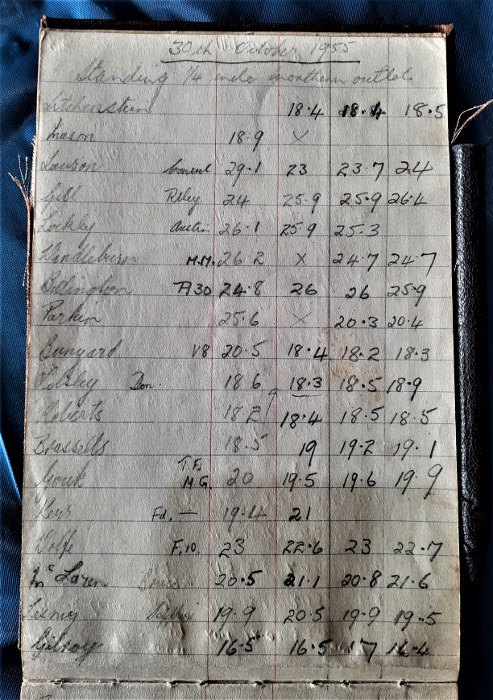 30th October 1955
Standing 1/4 mile northern outlet
Litchenstein 18.4 18.4 18.5
Mason 18.9 X
Lawson 29.1 23 23.7 24
Gill Riley 24 25.9 25.9 26.4
Lockley Austin 26.1 25.9 25.3
M.M. 26.2 X 24.7 24.7
Billington A30 24.8 26 26 25.9
Parkin 25.6 X 20.3 20.4
Bunyard V8 20.5 18.4 18.2 18.3
Horsley Don. 18.6 18.3 18.5 18.9
Roberts 18.2 18.4 18.5 18.5
Brassells 18.5 19 19.2 19.1
T.F.
M.G. 20 19.5 19.6 19.9
Kerr Fd. — 19.4 21
Wolfe F.10. 23 22.6 23 22.7
McLaren 20.5 21.1 20.8 21.6
19.9 20.5 19.9 19.5
Gilroy 16.5 16.5 17 16.4